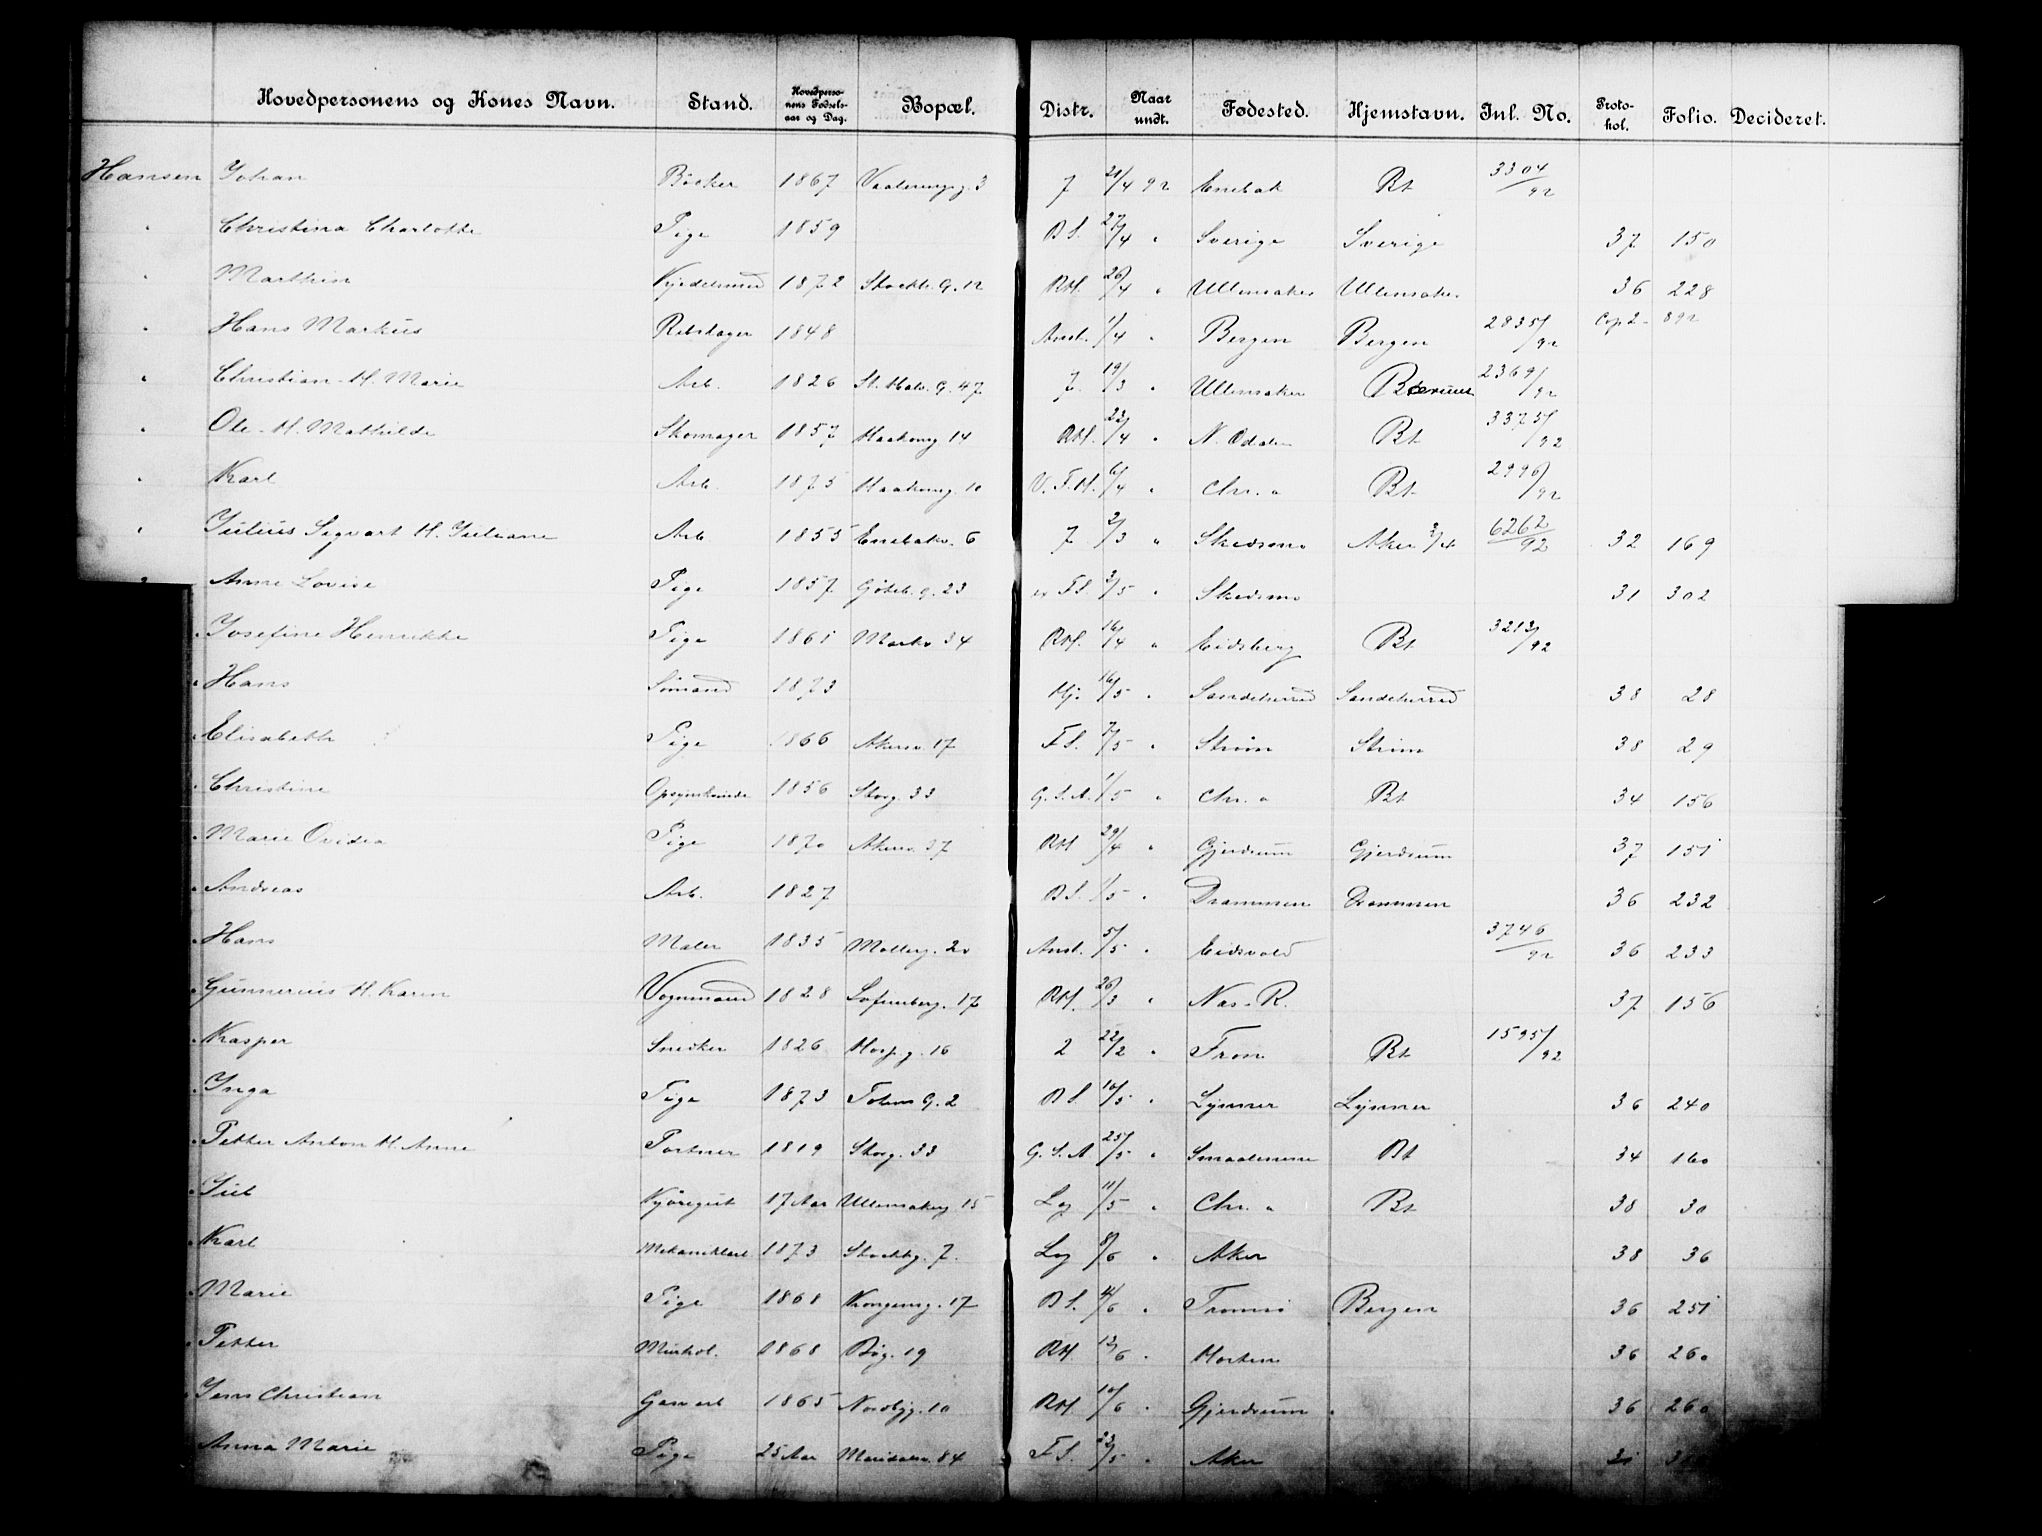 Hovedpersonens og Kones Navn. Stand. Hovedperso-nens Fødsels-aar og Dag. Bopæl. Distr. Naar undt. Fødested. Hjemstavn. Jnl. No. Proto-kol. Folio. Decideret.
Hansen Johan Bødker 1867 Vaalerengg. 3 7 21/4 92 Enebak Bt 3304/92
" Christina Charlotte Pige 1859 B S. 27/4 " Sverige Sverige 37 150
" Marthin 1872 Stockh. G. 12 RH. 26/4 " Ullensaker Ullensaker 36 228
" Hans Markus Rebslager 1848 Anst. 1/4 " Bergen Bergen 2835/92 Cop. 2 - 892
" Christian - H. Marie Arb. 1826 St. Halv. G. 47 7 19/3 " Ullensaker Bærum 2369/92
" Ole - H. Mathilde Skomager 1857 Haakong 14 RH. 22/4 " N. Odalen Bt 3375/92
" Karl Arb. 1875 Haakong. 10 V. F. H. 6/4 " Chr. a Bt 2996/92
" Julius Sigvart H. Juliane Arb 1855 Enebakv. 6 7 2/3 " Skedsmo Aker 3/4 6262/92 32 169
" Anne Lovise Pige 1857 Gøteb. g. 23 F S. 3/5 " Skedsmo 31 302
" Josefine Henrikke Pige 1861 Markv 34 RH. 16/4 " Eidsberg Bt 3213/92
" Hans Sømand 1873 Hj. 16/5 " Sandeherred Sandeherred 38 28
" Elisabeth Pige 1866 Akersv. 17 F S. 7/5 " Strøm Strøm 38 29
" Christine Opsynskvinde 1856 Storg. 33 G. S. A. 1/5 " Chr. a Bt 34 156
" Marie Ovidia Pige 1870 Akersv. 37 RH 29/4 " Gjerdrum Gjerdrum 37 151
" Andreas Arb. 1827 B S. 1/5 " Drammen Drammen 36 232
" Hans Maler 1835 Møllerg. 20 Anst. 5/5 " Eidsvold 3746/92 36 233
" Gunnerius H. Karen Vognmand 1828 Sofienberg. 17 RH. 26/3 " Næs - R. 37 156
" Kasper Snedker 1826 Hosp. g. 16 2 22/2 " Fron Bt 1595/92
" Inga Pige 1873 Tolens G. 2 B S. 10/5 " Lynner Lynner 36 240
" Petter Anton H. Anne Portner 1819 Storg. 33 G. S. A 25/5 " Smaalenene Bt 34 160
" Juel Kjøregut 17 Aar Ullensakerg. 15 Lg 11/5 " Chr. a Bt 38 30
" Karl 1873 Stockhg. 7. Lg 8/6 " Aker 38 36
" Marie Pige 1868 Kongensg. 17 B S. 4/6 " Tromsø Bergen 36 251
" Petter Murhdl. 1868 Bøg. 19 RH 13/6 " Horten 36 260
" Jens Christian Garverl 1865 Nordbyg. 10 RH. 10/6 " Gjerdrum 36 260
Anna Marie Pige 25 Aar Maridalsv. 84 F S. 23/5 " Aker